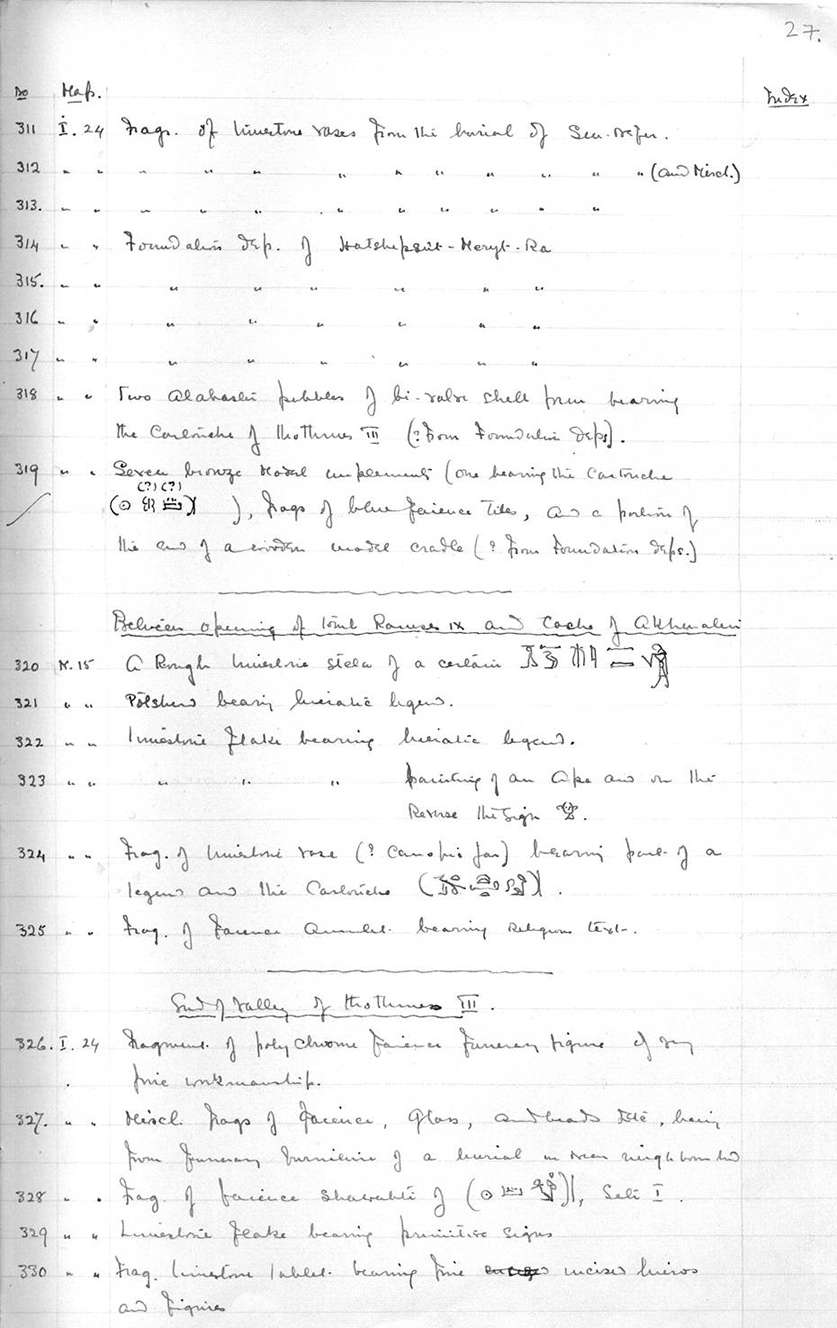 27.
No Map. Index
311 I. 24 Frags. of limestone vases from the burial of Sen-nefer.
312 " " " " " " " " " " " " (and Miscl.)
313. " " " " " " " " " " "
314 " " Foundation dep. of Hatshepsût-Meryt-Ra
315. " " " " " " " "
316 " " " " " " " "
317 " " " " " " " "
318 " " Two alabaster pebbles of bi-valve shell form bearing
the Cartouche of Thothmes III (? from Foundation deps).
319 " " Seven bronze model implements (one bearing the Cartouche
(?) (?)
( ), frags of blue faience tiles, and a portion of
the end of a wooden model cradle (? from Foundation deps.)
Between opening of tomb Ramses IX and Cache of Akhenaten
320 K. 15 A Rough limestone stela of a certain
321 " " Potsherd bearing hieratic legend.
322 " " Limestone flake bearing hieratic legend.
323 " " " " " painting of an Ape and on the
Reverse the sign .
324 " " Frag. of limestone vase (? Canopic jar) bearing part of a
legend and the Cartouche ( ).
325 " " Frag. of faience Amulet bearing religious text.
End of Valley of Thothmes III.
326. I. 24 Fragment of polychrome faience funerary figure of very
fine workmanship.
327. " " Miscl. frags of faience, glass, and beads etc, being
from funerary furniture of a burial in near neighbourhd
328 " " Frag. of faience shawabti of ( ), Seti I.
329 " " Limestone flake bearing primitive signs
330 " " Frag. limestone tablet bearing fine incised hieros
and figures